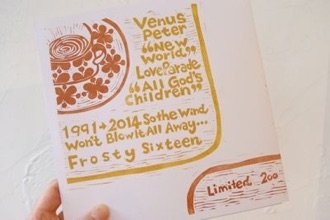 Venus
Peter
"New
World"
Love Parade
"All God's
Children"
1991→2014 So the Wind
Won't Blow It All Away...
Frosty Sixteen
Limited 200